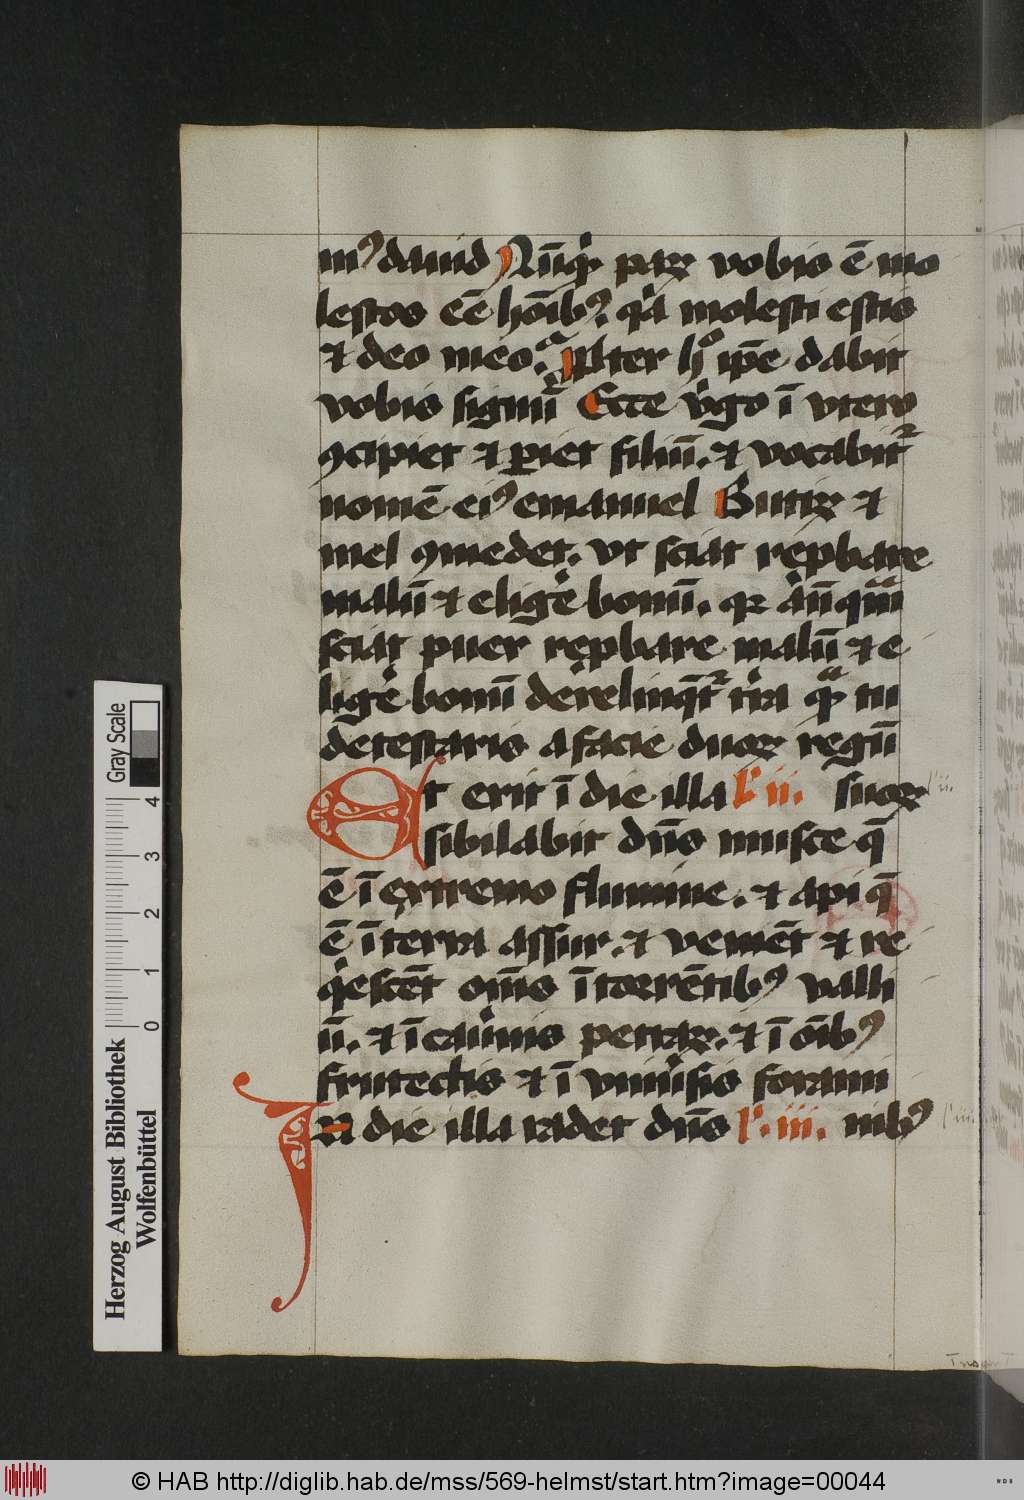 mꝰ dauid Nūqͥd paꝝ vobis ē mo
lestos eē hoı̄ibꝰ. qͥa molesti estis
⁊ deo meo. ꝓpter hͦ ip̄e dabit
vobis signū Ecce vͥgo ī vtero
ꝯcipiet ⁊ ꝑiet filiū. ⁊ vocabitᷣ
nomē eiꝰ emanuel Butiꝝ ⁊
mel ꝯmedet. vt sciat reꝓbare
malū ⁊ eligeͤ bonū. qꝛ aͤn̄qͣm
sciat puer reꝓbare malū ⁊ e
ligeͤ bonū derelinq̄tᷣ tͤra qͣm tu
detestaris a facie duoꝝ regū
Et erit ī die illa lͦ ii. suoꝝ
sibilabit dn̄s musce q̄
ē ī extremo flumine. ⁊ api q̄
ē ī terra assur. ⁊ veniēt ⁊ re
qͥescēt om̄s ī torrētibꝰ valli
ū. ⁊ ī cauͤnis petraꝝ. ⁊ ī oı̄bꝰ
frutectis ⁊ ī vniuͤsis forami
In die illa radet dn̄s lͦ. iii. nibꝰ
Gray Scale
4 3 2 1 0
Herzog August Bibliothek
Wolfenbüttel
© HAB http://diglib.hab.de/mss/569-helmst/start.htm?image=00044